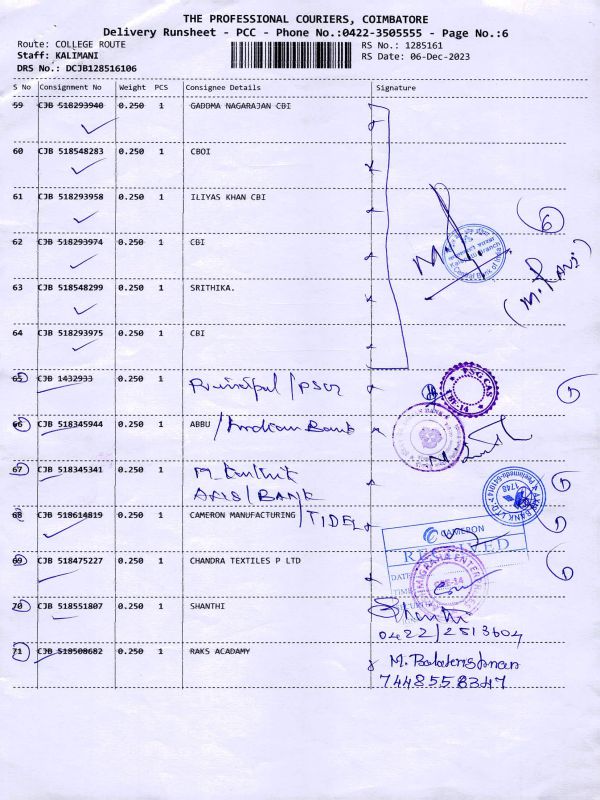 THE PROFESSIONAL COURIERS, COIMBATORE
Delivery Runsheet - PCC - Phone No.:0422-3505555 - Page No.:6
Route: COLLEGE ROUTE
Staff: KALIMANI
DRS No.: DCJB128516106
RS No.: 1285161
RS Date: 06-Dec-2023
S No Consignment No Weight PCS Consignee Details Signature
59 CJB 518293940 0.250 1 GADDMA NAGARAJAN CBI
60 CJB 518548283 0.250 1 CBOI
61 CJB 518293958 0.250 1 ILIYAS KHAN CBI
6
62 CJB 518293974 0.250 1 CBI
(M. Ravi)
63 CJB 518548299 0.250 1 SRITHIKA.
64 CJB 518293975 0.250 1 CBI
65 CJB 1432933 0.250 1 Principal / PSG
PSG CAS
1
66 CJB 518345944 0.250 1 ABBU / Indian Bank
67 CJB 518345341 0.250 1 M. Karthik
AXIS / BANK
1
68 CJB 518614819 0.250 1 CAMERON MANUFACTURING / TIDEL
CAMERON
RECEIVED
DATE
TIME
1
69 CJB 518475227 0.250 1 CHANDRA TEXTILES P LTD
1
70 CJB 518551807 0.250 1 SHANTHI
Shanthi
0422/2513604
71 CJB 518508682 0.250 1 RAKS ACADAMY
M. Balakrishnan
7448558347